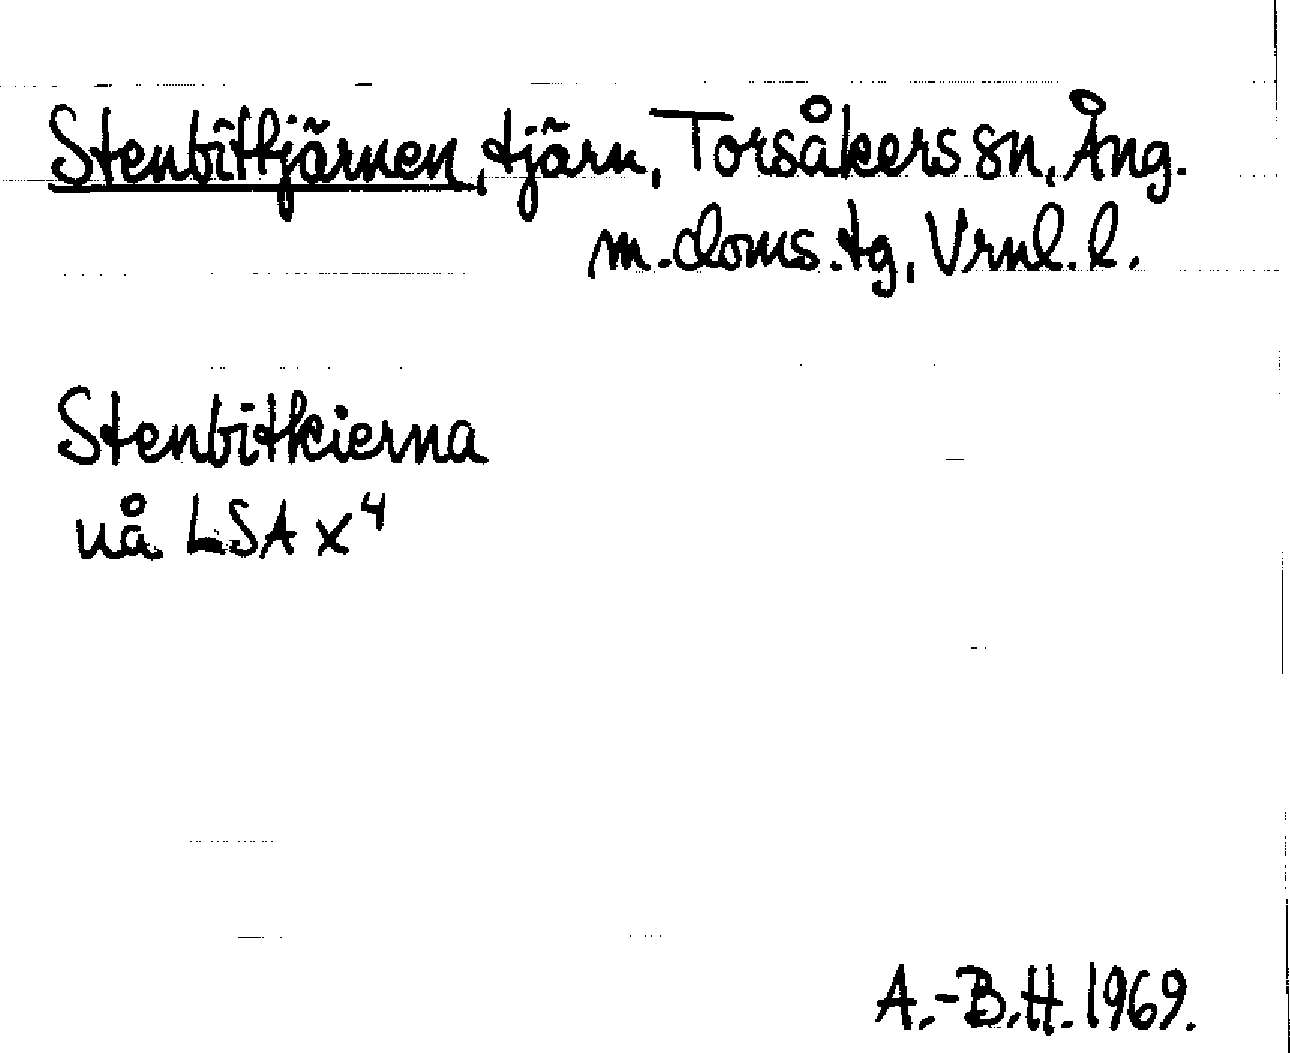 Stenbittjärnen, tjärn, Torsåkers sn, Ång.
m. doms. tg, Vrnl. l.
Stenbitkierna
uå LSA X⁴
A.-B.H. 1969.